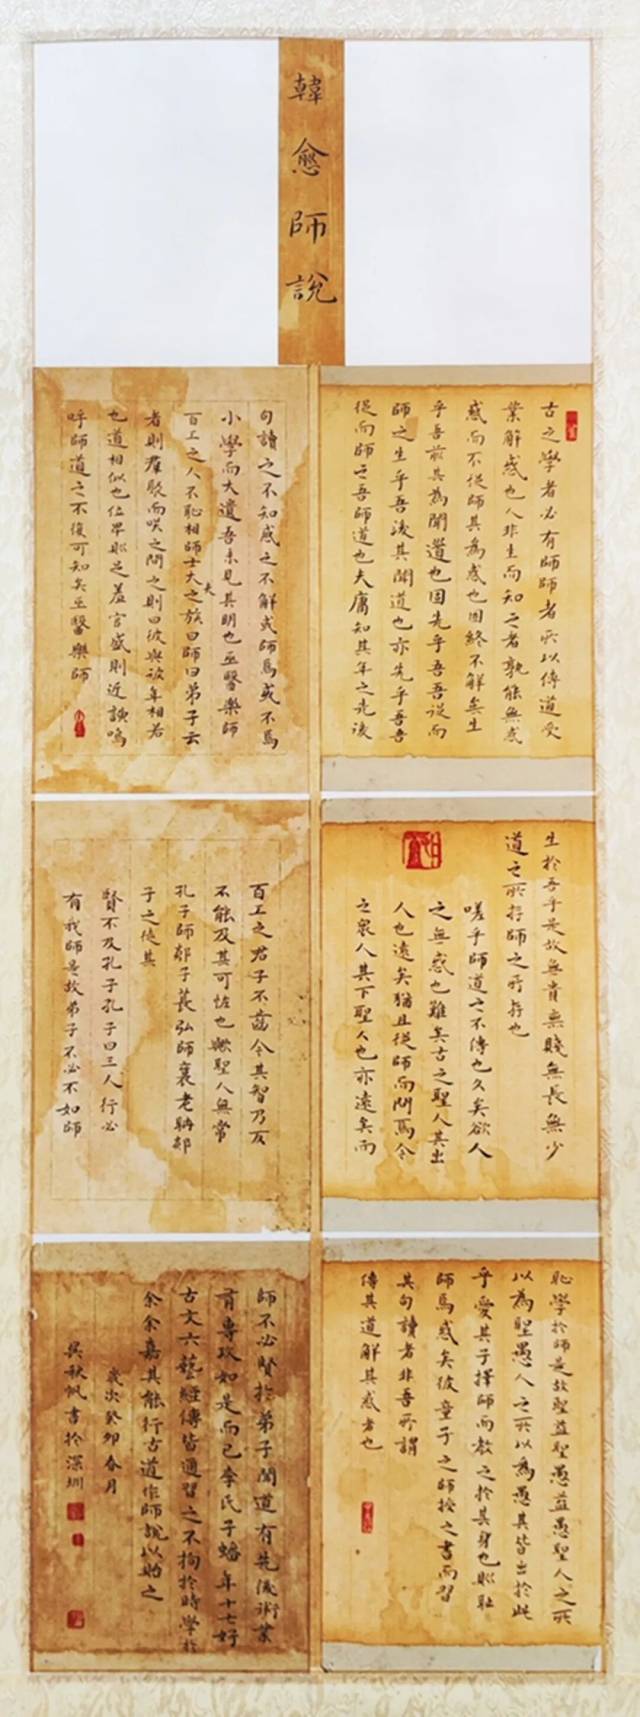 韓愈師說
古之學者必有師師者所以傳道受
業解惑也人非生而知之者孰能無惑
惑而不從師其為惑也因終不解矣生
乎吾前其為聞道也固先乎吾吾從而
師之生乎吾後其聞道也亦先乎吾吾
從而師之吾師道也夫庸知其年之先後
生於吾乎是故無貴無賤無長無少
道之所存師之所存也
嗟乎師道之不傳也久矣欲人
之無惑也難矣古之聖人其出
人也遠矣猶且從師而問焉今
之眾人其下聖人也亦遠矣而
恥學於師是故聖益聖愚益愚聖人之所
以為聖愚人之所以為愚其皆出於此
乎愛其子擇師而教之於其身也則恥
師焉惑矣彼童子之師授之書而習
其句讀者非吾所謂
傳其道解其惑者也
句讀之不知惑之不解或師焉或不焉
小學而大遺吾未見其明也巫醫樂師
百工之人不恥相師士大夫之族曰師曰弟子云
者則羣聚而笑之問之則曰彼與彼年相若
也道相似也位卑則足羞官盛則近諛嗚
呼師道之不復可知矣巫醫樂師
百工之君子不齒今其智乃反
不能及其可怪也歟聖人無常
孔子師郯子萇弘師襄老聃郯
子之徒其
賢不及孔子孔子曰三人行必
有我師是故弟子不必不如師
師不必賢於弟子聞道有先後術業
有專攻如是而已李氏子蟠年十七好
古文六藝經傳皆通習之不拘於時學於
余余嘉其能行古道作師說以貽之
歲次癸卯春月
吳秋帆書於深圳